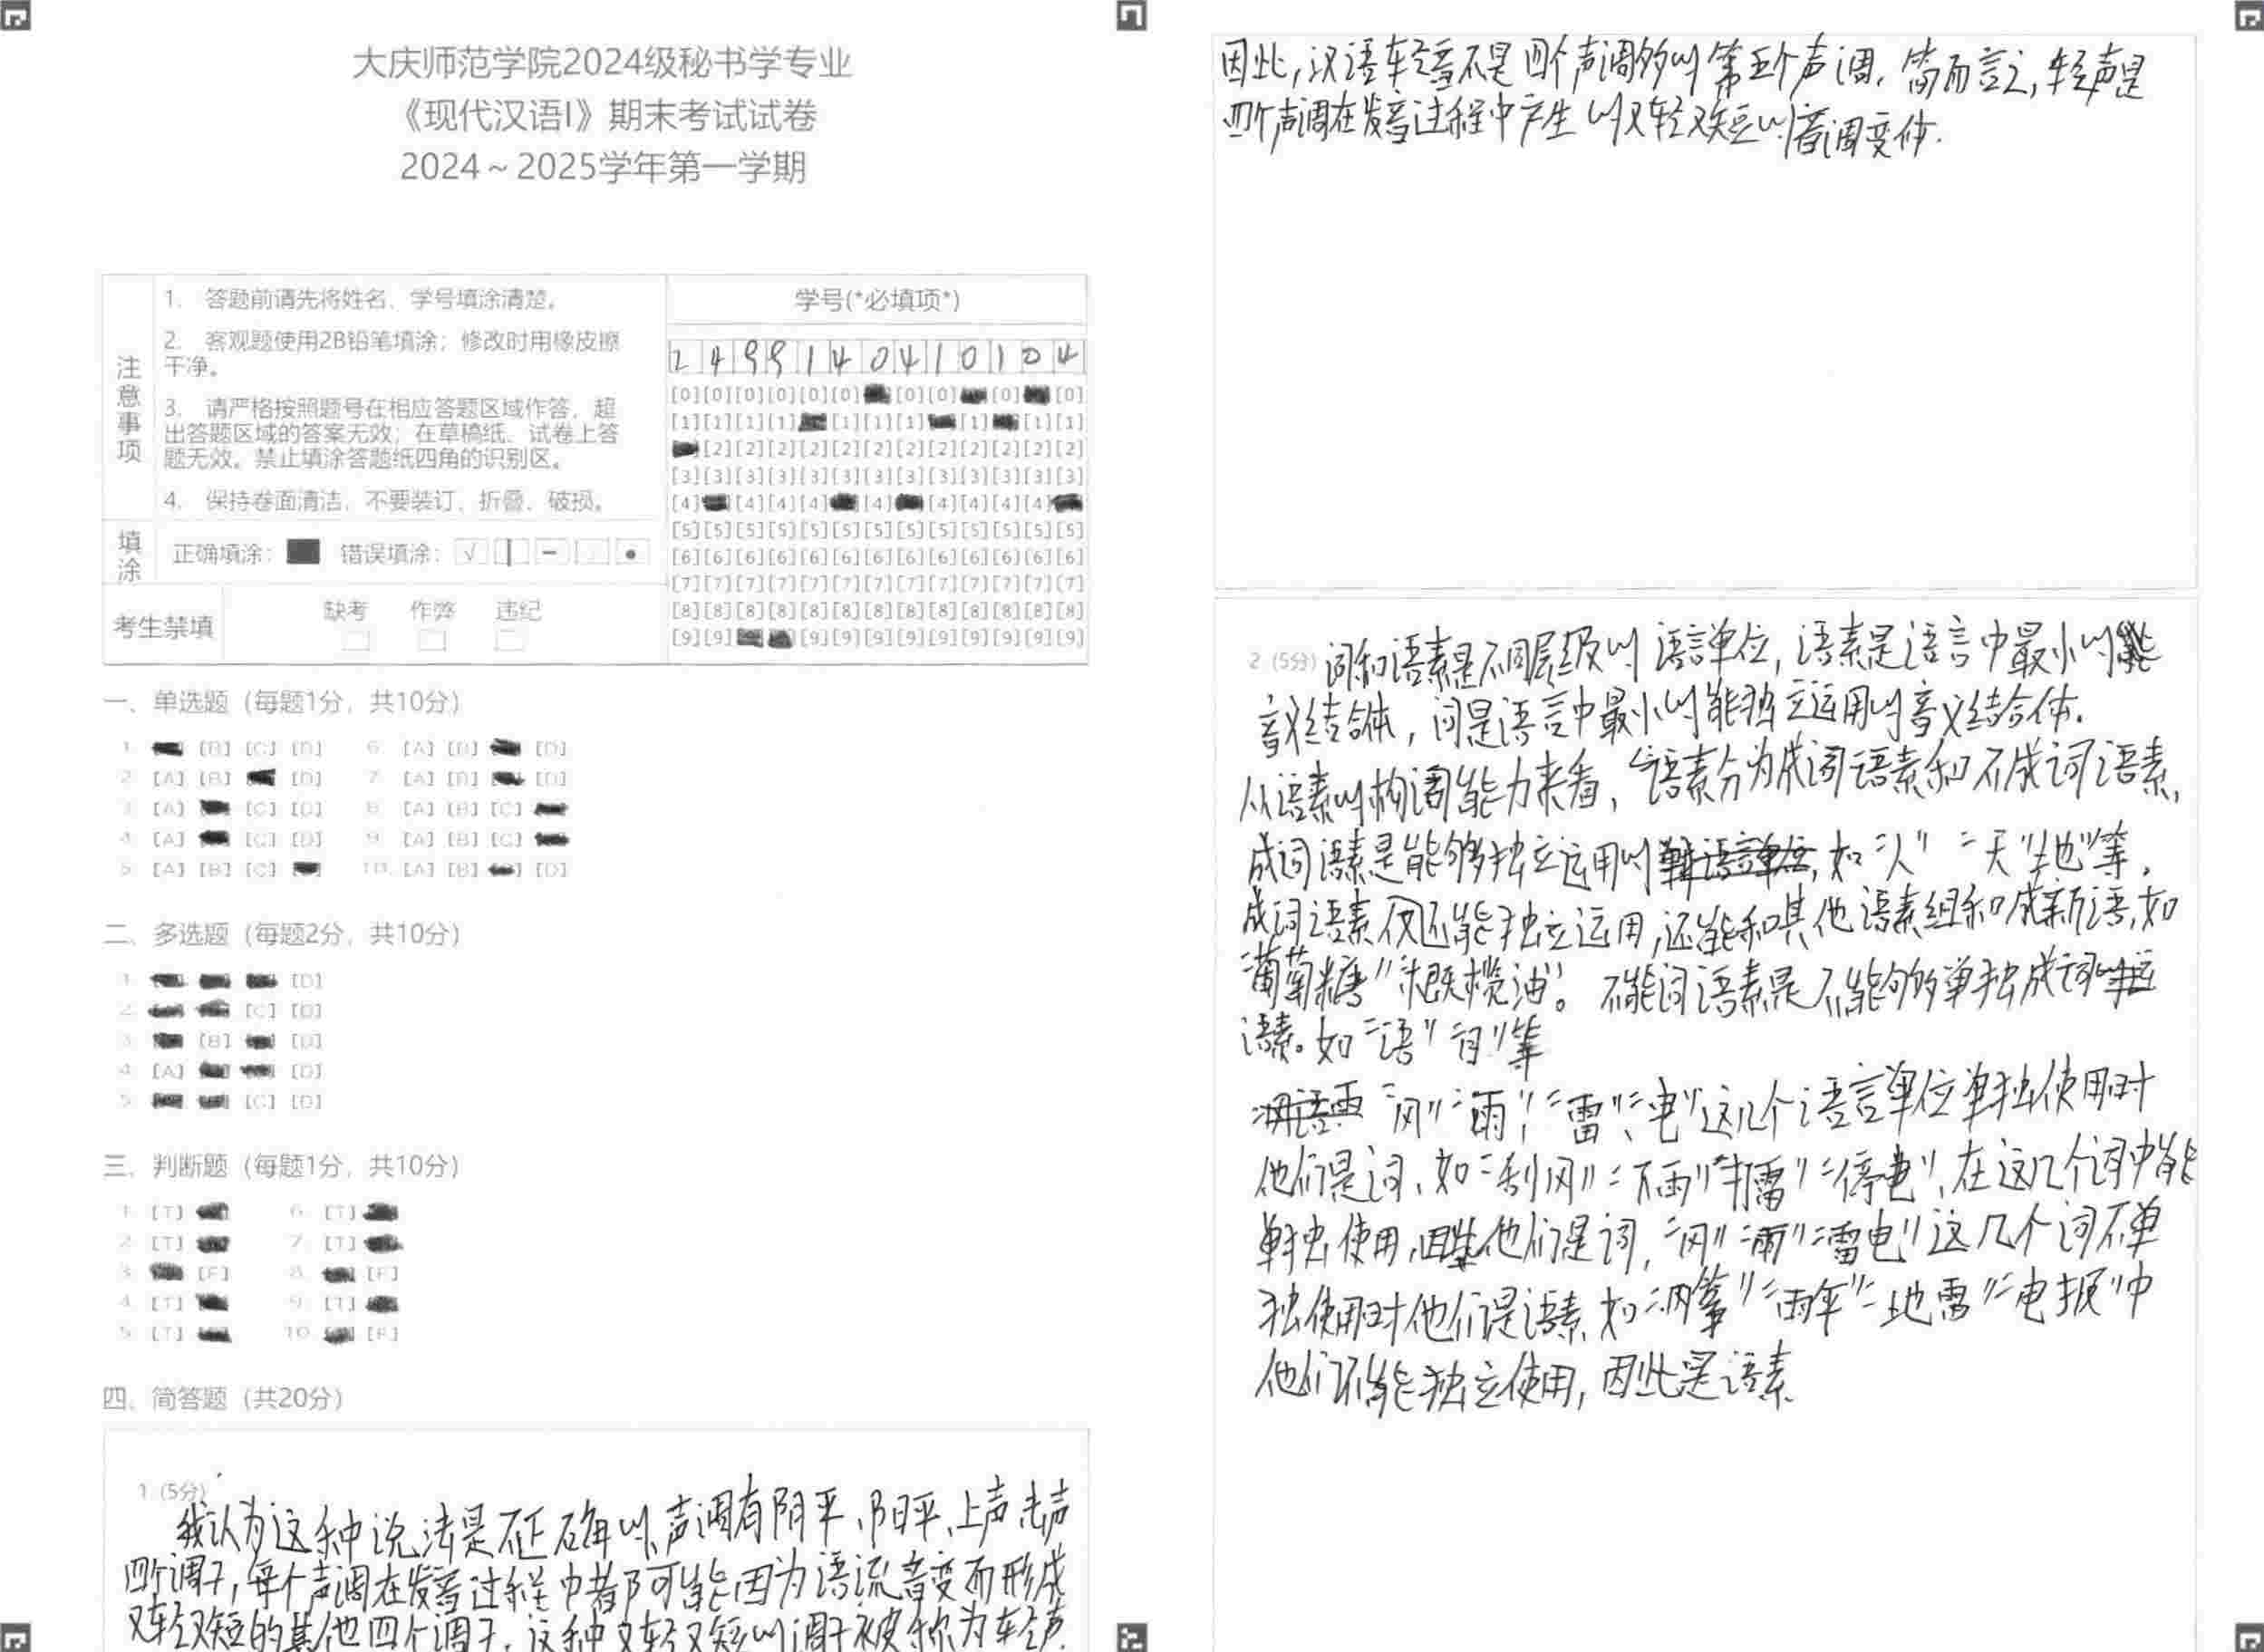 大庆师范学院2024级秘书学专业
《现代汉语Ⅰ》期末考试试卷
2024～2025学年第一学期
注意事项
1. 答题前请先将姓名、学号填涂清楚。
2. 客观题使用2B铅笔填涂；修改时用橡皮擦
干净。
3. 请严格按照题号在相应答题区域作答，超
出答题区域的答案无效；在草稿纸、试卷上答
题无效。禁止填涂答题纸四角的识别区。
4. 保持卷面清洁，不要装订、折叠、破损。
填涂
正确填涂： 错误填涂：
考生禁填
缺考 作弊 违纪
学号(*必填项*)
2 4 9 9 1 4 0 4 1 0 1 0 4
[0][0][0][0][0][0] [0][0] [0] [0]
[1][1][1][1] [1][1][1] [1] [1][1]
[2][2][2][2][2][2][2][2][2][2][2][2]
[3][3][3][3][3][3][3][3][3][3][3][3][3]
[4] [4][4][4] [4] [4][4][4][4]
[5][5][5][5][5][5][5][5][5][5][5][5][5]
[6][6][6][6][6][6][6][6][6][6][6][6][6]
[7][7][7][7][7][7][7][7][7][7][7][7][7]
[8][8][8][8][8][8][8][8][8][8][8][8][8]
[9][9] [9][9][9][9][9][9][9][9][9]
一、单选题（每题1分，共10分）
1. [B] [C] [D] 6. [A] [B] [D]
2. [A] [B] [D] 7. [A] [B] [D]
3. [A] [C] [D] 8. [A] [B] [C]
4. [A] [C] [D] 9. [A] [B] [C]
5. [A] [B] [C] 10. [A] [B] [D]
二、多选题（每题2分，共10分）
1. [D]
2. [C] [D]
3. [B] [D]
4. [A] [D]
5. [C] [D]
三、判断题（每题1分，共10分）
1. [T] 6. [T]
2. [T] 7. [T]
3. [F] 8. [F]
4. [T] 9. [T]
5. [T] 10. [F]
四、简答题（共20分）
1 (5分)
我认为这种说法是不正确的、声调有阴平、阳平、上声、去声
四个调子，每个声调在发音过程中都可能因为语流音变而形成
又轻又短的其他四个调子，这种又轻又短的调子被称为轻声.
因此，汉语轻音不是四个声调外的第五个声调，简而言之，轻声是
四个声调在发音过程中产生的又轻又短的音调变体.
2 (5分) 词和语素是不同层级的语言单位，语素是语言中最小的
音义结合体，词是语言中最小的能独立运用的音义结合体.
从语素的构词能力来看，语素分为成词语素和不成词语素，
成词语素是能够独立运用的 如“人”“天”“地”等.
成词语素仅还能独立运用，还能和其他语素组和成新语，如
“葡萄糖”“橄榄油”。不能词语素是不能够单独成词的
语素。如“语”“目”等
“风”“雨”、“雷”、“电”这几个语言单位单独使用时
他们是词，如“刮风”“下雨”“打雷”“停电”，在这几个词中能
单独使用，他们是词，“风”“雨”“雷电”这几个词不单
独使用时他们是语素，如“风筝”“雨伞”“地雷”“电报”中
他们不能独立使用，因此是语素